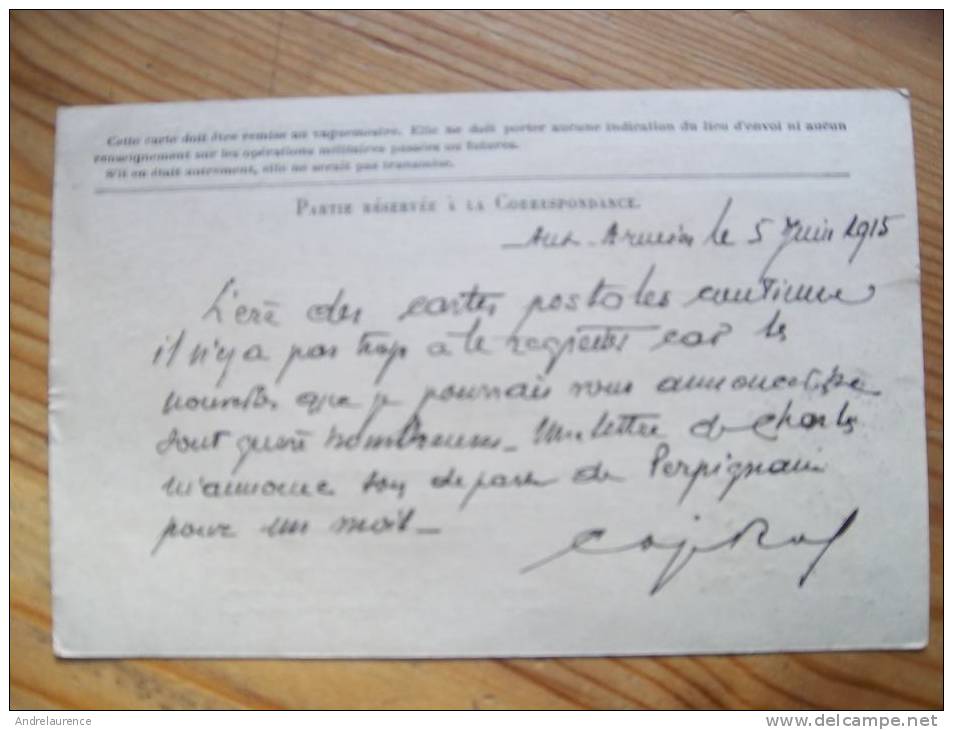 Cette carte doit être remise au vaguemestre. Elle ne doit porter aucune indication du lieu d'envoi ni aucun
renseignement sur les opérations militaires passées ou futures.
S'il en était autrement, elle ne serait pas transmise.
PARTIE RÉSERVÉE À LA CORRESPONDANCE.
Aux Armées le 5 Juin 1915
L'ère des cartes postales continue
il n'y a pas trop à le regretter car les
nouvelles que je pourrais vous annoncer
sont guère nombreuses _ Une lettre de Charles
m'annonce son départ de Perpignan
pour un mois _
Andrelaurence
www.delcampe.net